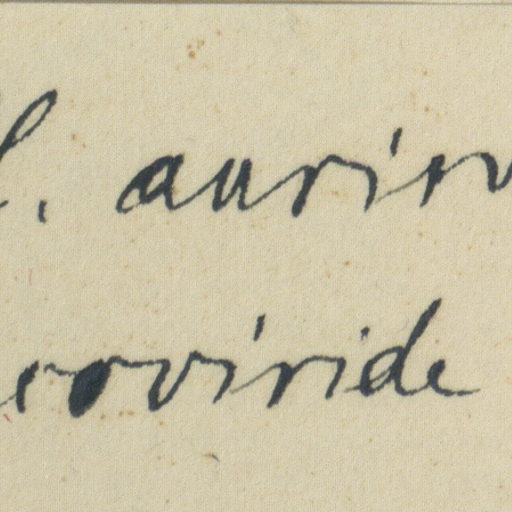 l. auriv
eoviride